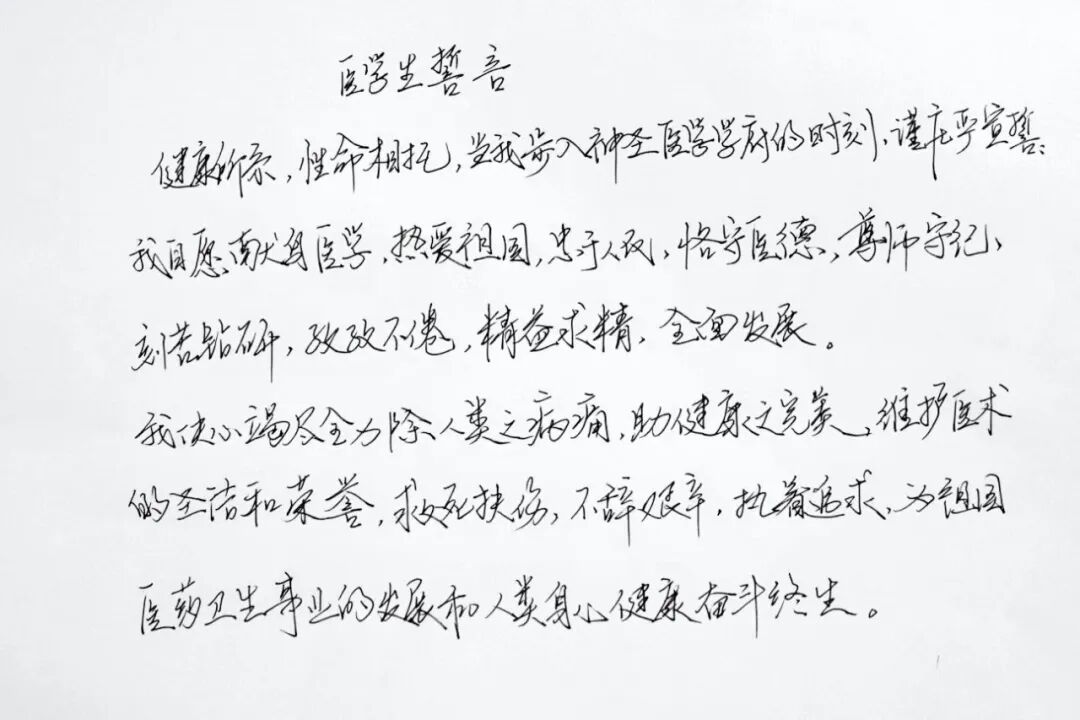 医学生誓言
健康所系，性命相托，当我步入神圣医学学府的时刻，谨庄严宣誓：
我自愿献身医学，热爱祖国，忠于人民，恪守医德，尊师守纪，
刻苦钻研，孜孜不倦，精益求精，全面发展。
我决心竭尽全力除人类之病痛，助健康之完美，维护医术
的圣洁和荣誉，救死扶伤，不辞艰辛，执着追求，为祖国
医药卫生事业的发展和人类身心健康奋斗终生。